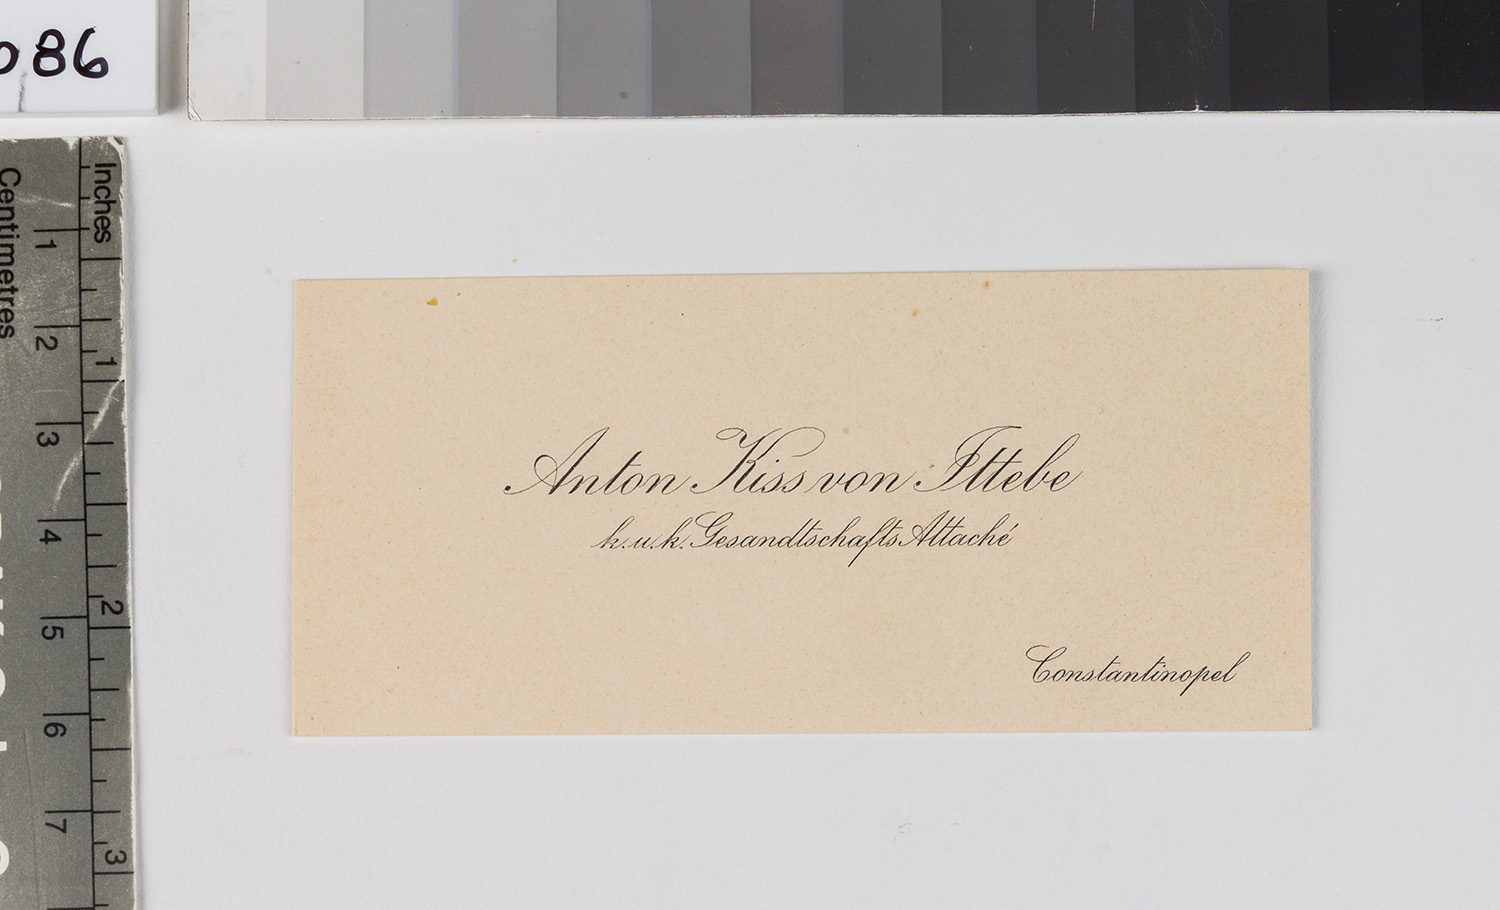 086
Inches
Centimetres
1
2
3
4
5
6
7
1
2
3
Anton Kiss von Ittebe
k.u.k. Gesandtschafts Attaché
Constantinopel